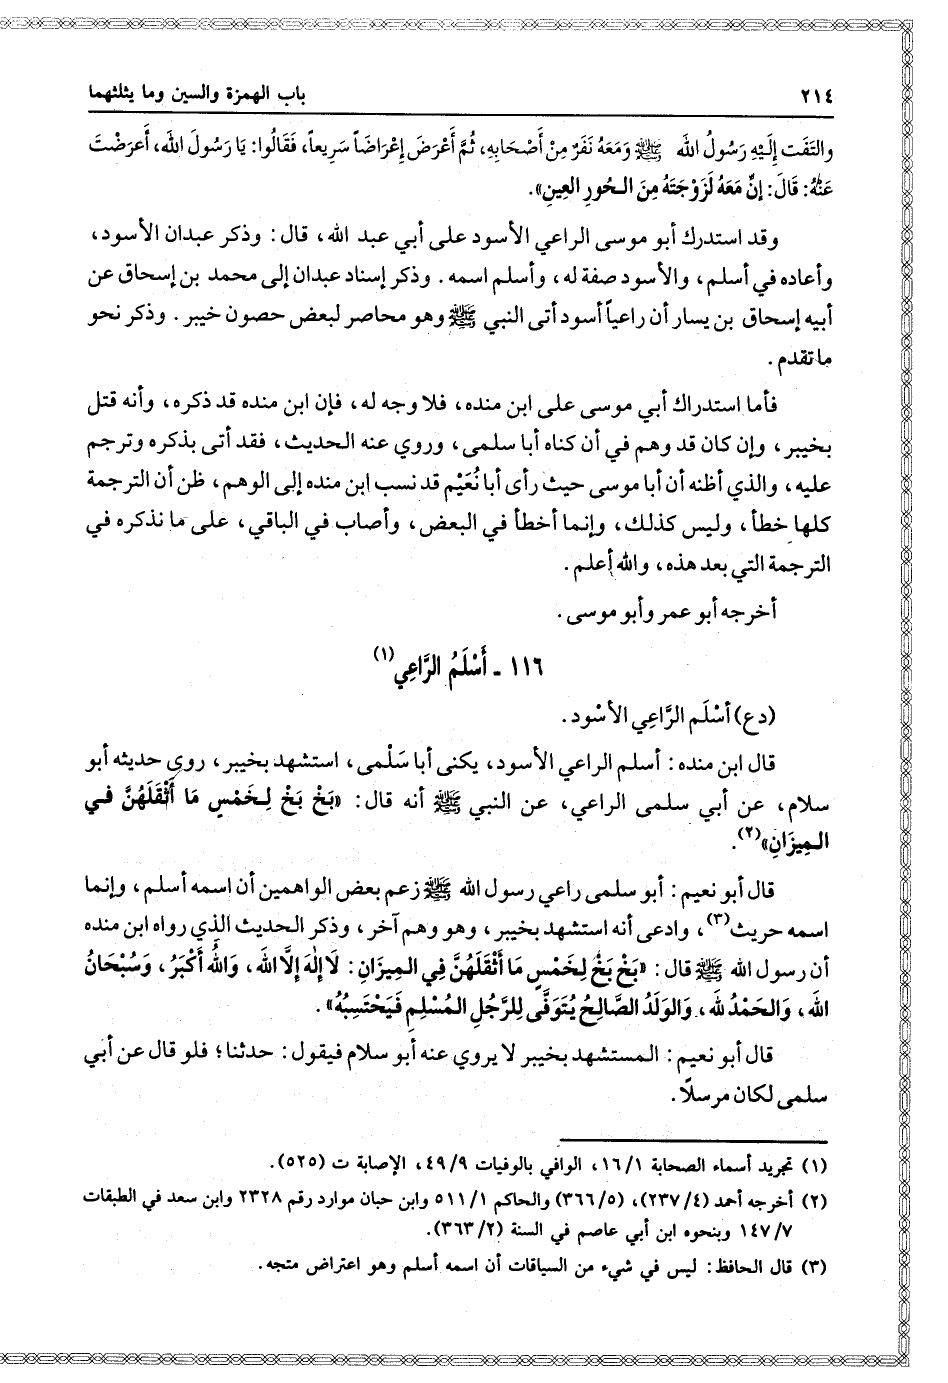 ٢١٤ باب الهمزة والسين وما يثلثهما
والتَفَت إِلَيْهِ رَسُولُ الله ﷺ وَمَعَهُ نَفَرٌ مِنْ أَصْحَابِهِ، ثُمَّ أَعْرَضَ إِعْرَاضَاً سَرِيعاً، فَقَالُوا: يَا رَسُولَ الله، أَعرَضْتَ
عَنْهُ: قَالَ: إِنَّ مَعَهُ لَزَوْجَتَهُ مِنَ الحُورِ العِينِ».
وقد استدرك أبو موسى الراعي الأسود على أبي عبد الله، قال: وذكر عبدان الأسود،
وأعاده في أسلم، والأسود صفة له، وأسلم اسمه. وذكر إسناد عبدان إلى محمد بن إسحاق عن
أبيه إسحاق بن يسار أن راعياً أسود أتى النبي ﷺ وهو محاصر لبعض حصون خيبر. وذكر نحو
ما تقدم.
فأما استدراك أبي موسى على ابن منده، فلا وجه له، فإن ابن منده قد ذكره، وأنه قتل
بخيبر، وإن كان قد وهم في أن كناه أبا سلمى، وروي عنه الحديث، فقد أتى بذكره وترجم
عليه، والذي أظنه أن أبا موسى حيث رأى أبا نُعَيْم قد نسب ابن منده إلى الوهم، ظن أن الترجمة
كلها خطأ، وليس كذلك، وإنما أخطأ في البعض، وأصاب في الباقي، على ما نذكره في
الترجمة التي بعد هذه، والله أعلم.
أخرجه أبو عمر وأبو موسى.
١١٦ - أَسْلَمُ الرَّاعِي(١)
(دع) أسْلَم الرَّاعِي الأسْود.
قال ابن منده: أسلم الراعي الأسود، يكنى أبا سَلْمى، استشهد بخيبر، روى حديثه أبو
سلام، عن أبي سلمى الراعي، عن النبي ﷺ أنه قال: «بَخْ بَخْ لِخَمْسٍ مَا أَثْقَلَهُنَّ في
المِيزَانِ»(٢).
قال أبو نعيم: أبو سلمى راعي رسول الله ﷺ زعم بعض الواهمين أن اسمه أسلم، وإنما
اسمه حريث(٣)، وادعى أنه استشهد بخيبر، وهو وهم آخر، وذكر الحديث الذي رواه ابن منده
أن رسول الله ﷺ قال: «بَخْ بَخْ لِخَمْسٍ مَا أَثْقَلَهُنَّ فِي المِيزَانِ: لَا إِلٰهَ إِلَّا الله، وَالله أَكْبَرُ، وَسُبْحَانُ
الله، وَالحَمْدُ لله، وَالوَلَدُ الصَّالِحُ يُتَوَفَّى لِلرَّجُلِ المُسْلِمِ فَيَحْتَسِبُهُ».
قال أبو نعيم: المستشهد بخيبر لا يروي عنه أبو سلام فيقول: حدثنا؛ فلو قال عن أبي
سلمى لكان مرسلاً.
(١) تجريد أسماء الصحابة ١٦/١، الوافي بالوفيات ٤٩/٩، الإصابة ت (٥٢٥).
(٢) أخرجه أحمد (٢٣٧/٤)، (٣٦٦/٥) والحاكم ٥١١/١ وابن حبان موارد رقم ٢٣٢٨ وابن سعد في الطبقات
١٤٧/٧ وبنحوه ابن أبي عاصم في السنة (٣٦٣/٢).
(٣) قال الحافظ: ليس في شيء من السياقات أن اسمه أسلم وهو اعتراض متجه.